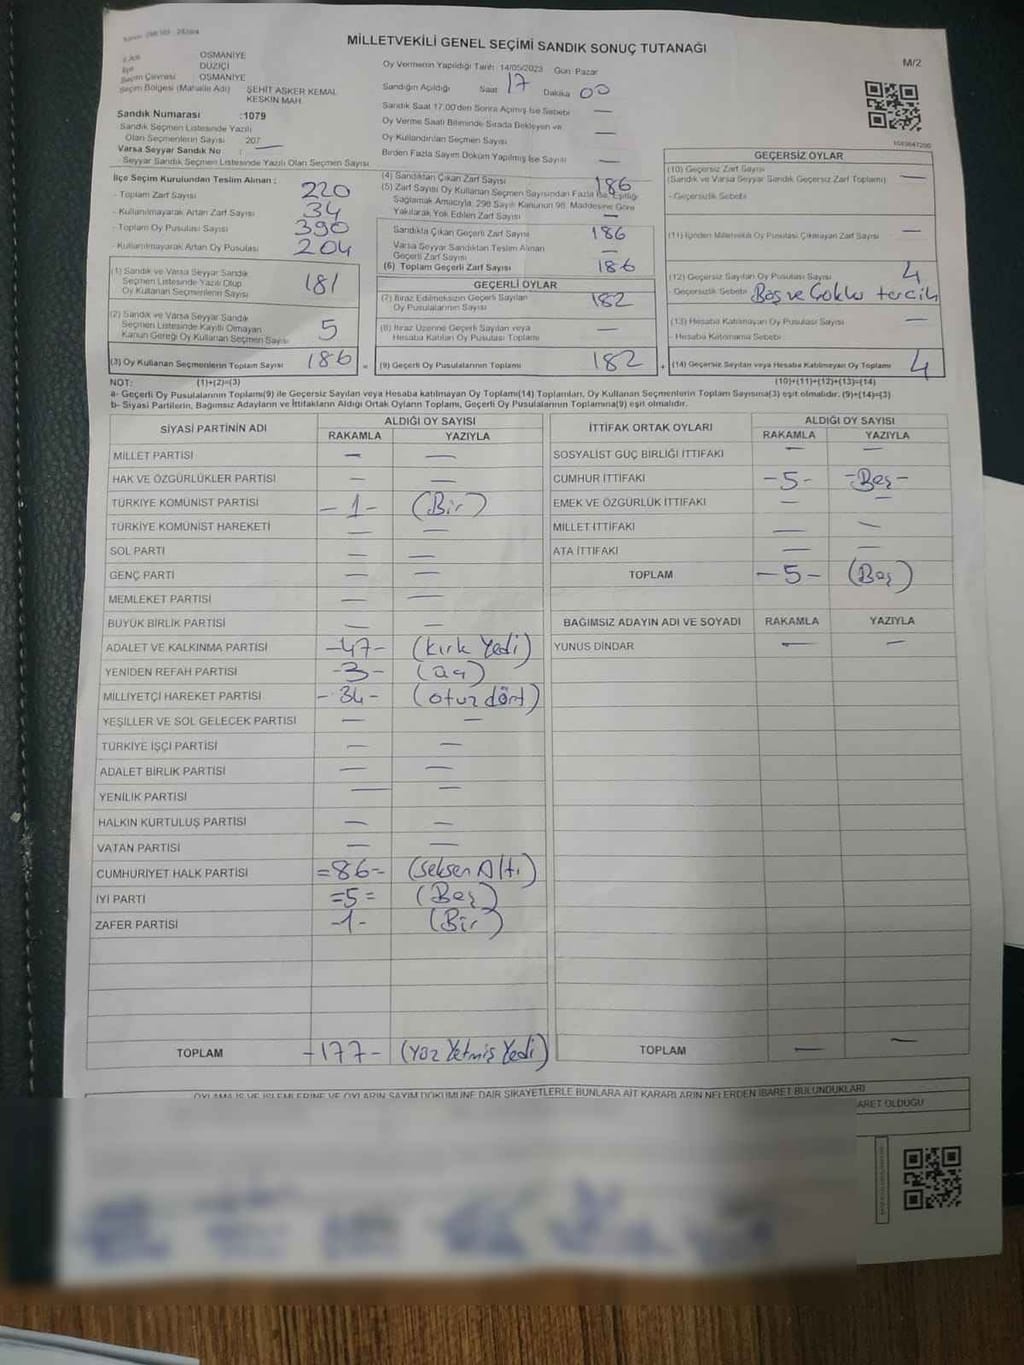 MİLLETVEKİLİ GENEL SEÇİMİ SANDIK SONUÇ TUTANAĞI
M/2
OSMANİYE
DÜZİÇİ
Seçim Çevresi OSMANİYE
Seçim Bölgesi (Mahalle Adı) ŞEHİT ASKER KEMAL KESKİN MAH.
Sandık Numarası :1079
Sandık Seçmen Listesinde Yazılı
Olan Seçmenlerin Sayısı : 207
Varsa Seyyar Sandık No : —
Seyyar Sandık Seçmen Listesinde Yazılı Olan Seçmen Sayısı
Oy Vermenin Yapıldığı Tarih :14/05/2023 Gün :Pazar
Sandığın Açıldığı Saat 17 Dakika 00
Sandık Saat 17.00'den Sonra Açılmış İse Sebebi —
Oy Verme Saati Bitiminde Sırada Bekleyen ve
Oy Kullandırılan Seçmen Sayısı —
Birden Fazla Sayım Döküm Yapılmış İse Sayısı —
İlçe Seçim Kurulundan Teslim Alınan :
- Toplam Zarf Sayısı 220
- Kullanılmayarak Artan Zarf Sayısı 34
- Toplam Oy Pusulası Sayısı 390
- Kullanılmayarak Artan Oy Pusulası 204
(1) Sandık ve Varsa Seyyar Sandık
Seçmen Listesinde Yazılı Olup
Oy Kullanan Seçmenlerin Sayısı 181
(2) Sandık ve Varsa Seyyar Sandık
Seçmen Listesinde Kayıtlı Olmayan
Kanun Gereği Oy Kullanan Seçmen Sayısı 5
(3) Oy Kullanan Seçmenlerin Toplam Sayısı 186 =
(4) Sandıktan Çıkan Zarf Sayısı 186
(5) Zarf Sayısı Oy Kullanan Seçmen Sayısından Fazla İse, Eşitliği
Sağlamak Amacıyla, 298 Sayılı Kanunun 98. Maddesine Göre
Yakılarak Yok Edilen Zarf Sayısı —
Sandıkta Çıkan Geçerli Zarf Sayısı 186
Varsa Seyyar Sandıktan Teslim Alınan
Geçerli Zarf Sayısı —
(6) Toplam Geçerli Zarf Sayısı 186
GEÇERLİ OYLAR
(7) İtiraz Edilmeksizin Geçerli Sayılan
Oy Pusulalarının Sayısı 182
(8) İtiraz Üzerine Geçerli Sayılan veya
Hesaba Katılan Oy Pusulası Toplamı —
(9) Geçerli Oy Pusulalarının Toplamı 182 +
GEÇERSİZ OYLAR
(10) Geçersiz Zarf Sayısı
(Sandık ve Varsa Seyyar Sandık Geçersiz Zarf Toplamı) —
- Geçersizlik Sebebi
(11) İçinden Milletvekili Oy Pusulası Çıkmayan Zarf Sayısı —
(12) Geçersiz Sayılan Oy Pusulası Sayısı 4
- Geçersizlik Sebebi Boş ve Çoklu tercih
(13) Hesaba Katılmayan Oy Pusulası Sayısı —
- Hesaba Katılmama Sebebi
(14) Geçersiz Sayılan veya Hesaba Katılmayan Oy Toplamı 4
NOT: (1)+(2)=(3) (10)+(11)+(12)+(13)=(14)
a- Geçerli Oy Pusulalarının Toplamı(9) ile Geçersiz Sayılan veya Hesaba katılmayan Oy Toplamı(14) Toplamları, Oy Kullanan Seçmenlerin Toplam Sayısına(3) eşit olmalıdır. (9)+(14)=(3)
b- Siyasi Partilerin, Bağımsız Adayların ve İttifakların Aldığı Ortak Oyların Toplamı, Geçerli Oy Pusulalarının Toplamına(9) eşit olmalıdır.
SİYASİ PARTİNİN ADI ALDIĞI OY SAYISI
RAKAMLA YAZIYLA
MİLLET PARTİSİ — —
HAK VE ÖZGÜRLÜKLER PARTİSİ — —
TÜRKİYE KOMÜNİST PARTİSİ -1- (Bir)
TÜRKİYE KOMÜNİST HAREKETİ — —
SOL PARTİ — —
GENÇ PARTİ — —
MEMLEKET PARTİSİ — —
BÜYÜK BİRLİK PARTİSİ — —
ADALET VE KALKINMA PARTİSİ -47- (Kırk Yedi)
YENİDEN REFAH PARTİSİ -3- (üç)
MİLLİYETÇİ HAREKET PARTİSİ -34- (otuz dört)
YEŞİLLER VE SOL GELECEK PARTİSİ — —
TÜRKİYE İŞÇİ PARTİSİ — —
ADALET BİRLİK PARTİSİ — —
YENİLİK PARTİSİ — —
HALKIN KURTULUŞ PARTİSİ — —
VATAN PARTİSİ — —
CUMHURİYET HALK PARTİSİ =86- (Seksen Altı)
İYİ PARTİ =5= (Beş)
ZAFER PARTİSİ -1- (Bir)
TOPLAM -177- (Yüz Yetmiş Yedi)
İTTİFAK ORTAK OYLARI ALDIĞI OY SAYISI
RAKAMLA YAZIYLA
SOSYALİST GÜÇ BİRLİĞİ İTTİFAKI — —
CUMHUR İTTİFAKI -5- -Beş-
EMEK VE ÖZGÜRLÜK İTTİFAKI — —
MİLLET İTTİFAKI — —
ATA İTTİFAKI — —
TOPLAM -5- (Beş)
BAĞIMSIZ ADAYIN ADI VE SOYADI RAKAMLA YAZIYLA
YUNUS DİNDAR — —
TOPLAM — —
OYLAMA İŞ VE İŞLEMLERİNE VE OYLARIN SAYIM DÖKÜMÜNE DAİR ŞİKAYETLERLE BUNLARA AİT KARARLARIN NELERDEN İBARET BULUNDUKLARI
ARET OLDUĞU